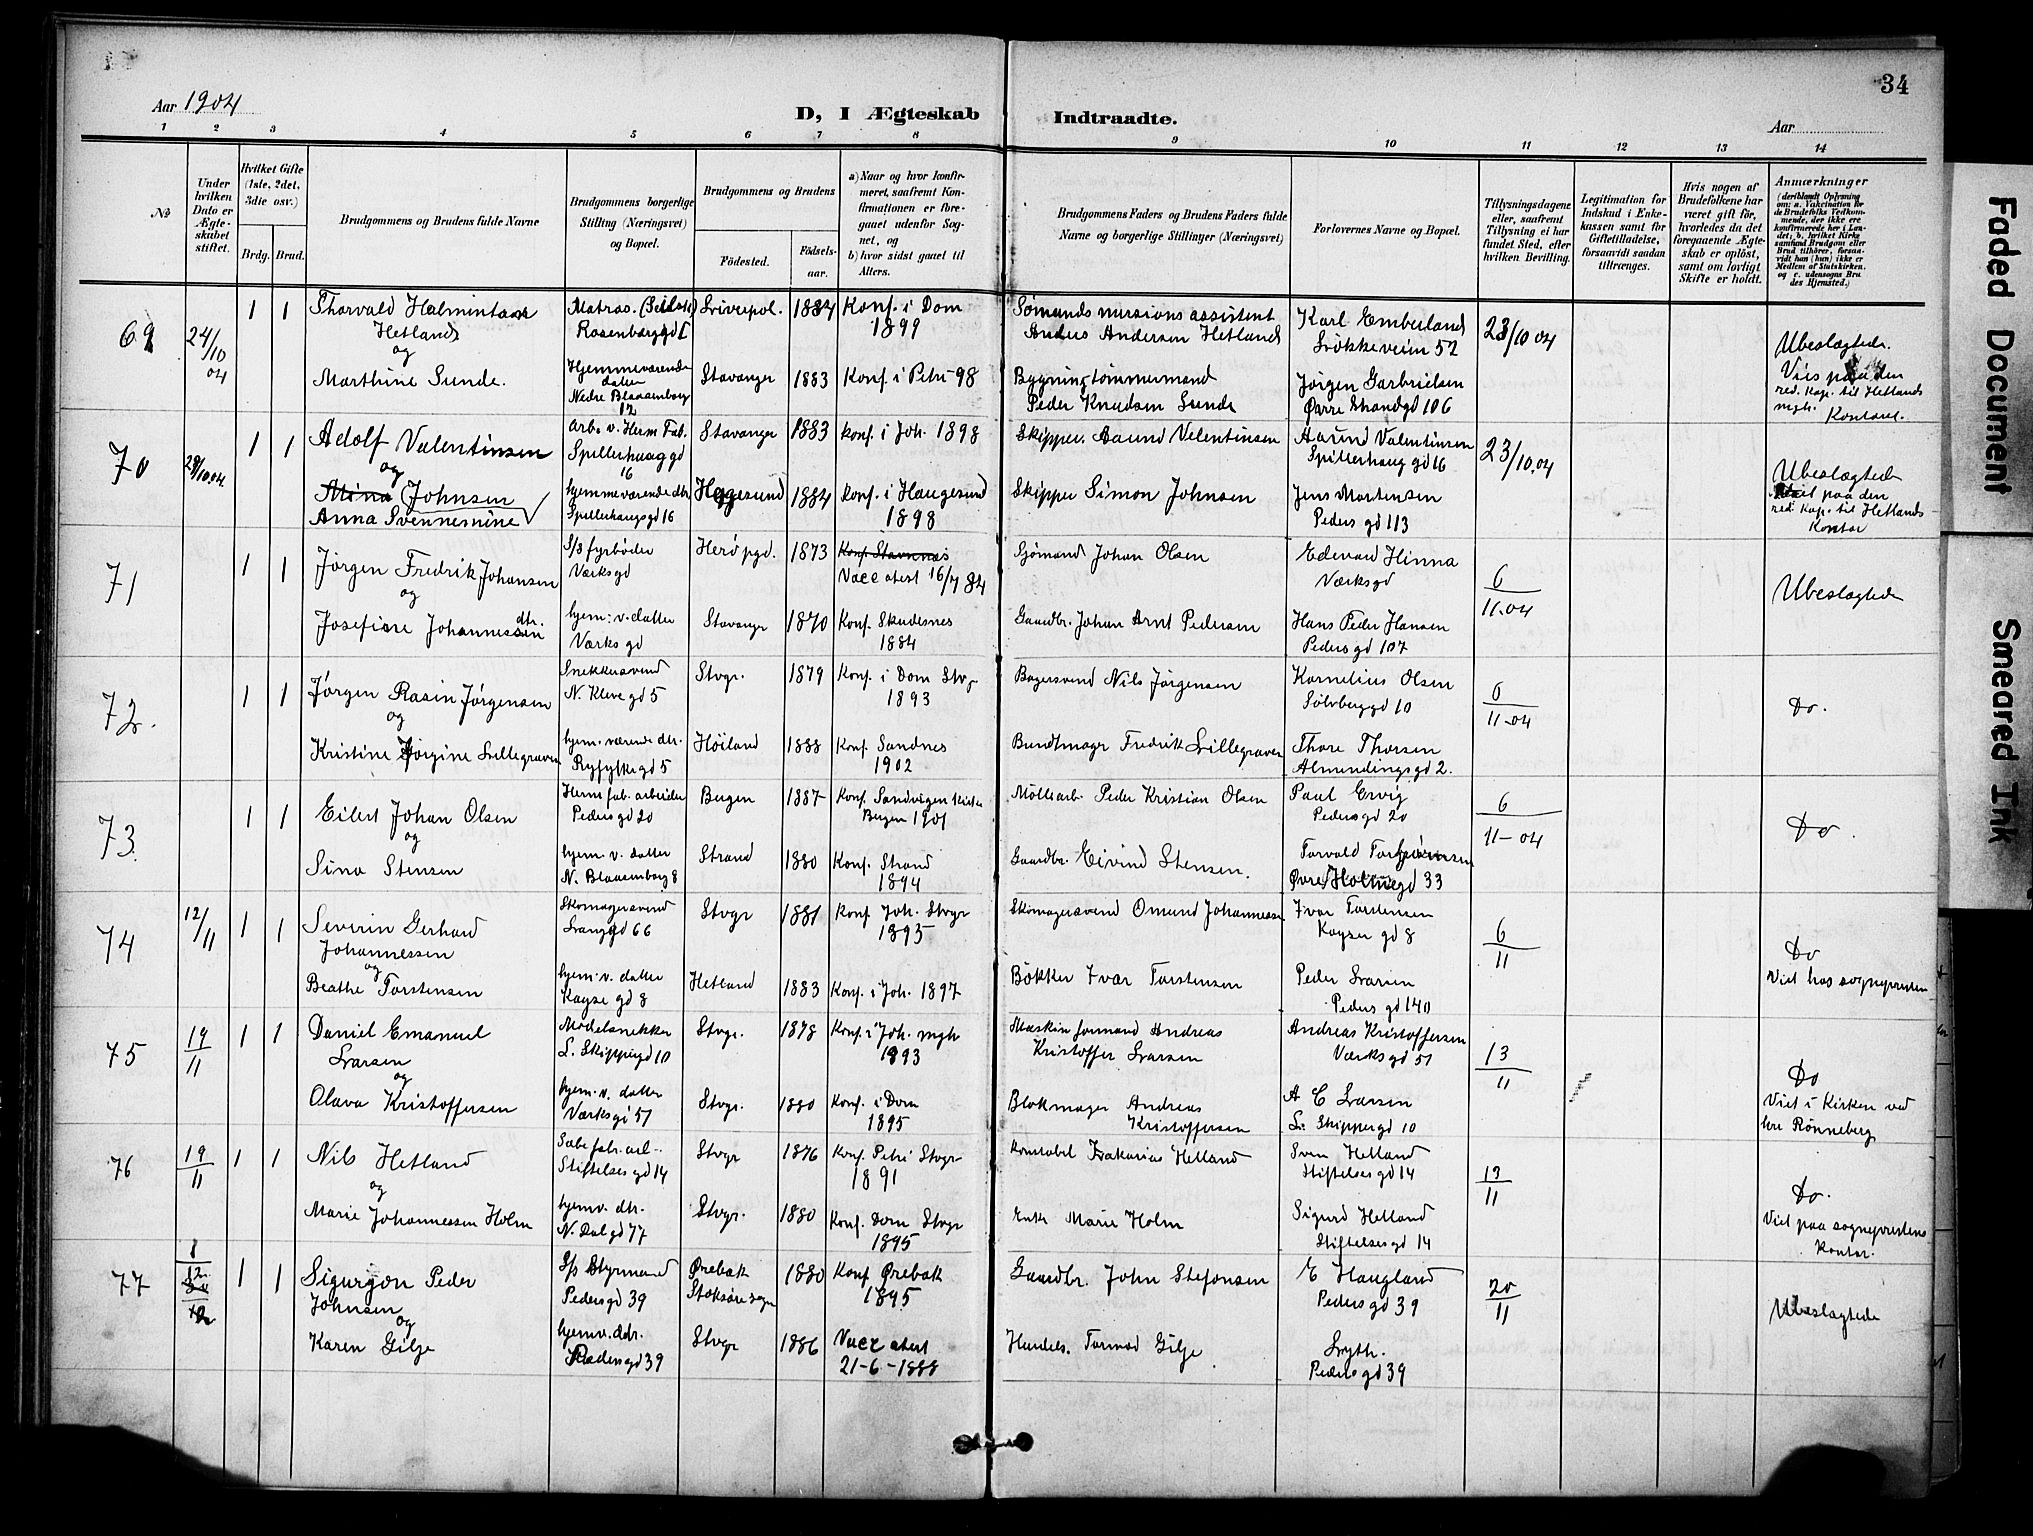 34
Aar 1904
D, I Ægteskab Indtraadte.
Aar
1 2 3 4 5 6 7 8 9 10 11 12 13 14
No
Under hvilken Dato er Ægteskabet stiftet.
Hvilket Gifte (1ste, 2det, 3die osv.)
Brdg. Brud.
Brudgommens og Brudens fulde Navne
Brudgommens borgerlige Stilling (Næringsvei) og Bopæl.
Brudgommens og Brudens
Fødested. Fødsels-aar.
a) Naar og hvor konfirmeret, saafremt Konfirmationen er foregaaet udenfor Sognet, og
b) hvor sidst gaaet til Alters.
Brudgommens Faders og Brudens Faders fulde Navne og borgerlige Stillinger (Næringsvei)
Forlovernes Navne og Bopæl.
Tillysningsdagene eller, saafremt Tillysning ei har fundet Sted, efter hvilken Bevilling.
Legitimation for Indskud i Enkekassen samt for Giftetilladelse, forsaavidt saadan tiltrænges.
Hvis nogen af Brudefolkene har været gift før, hvorledes da det foregaaende Ægteskab er opløst, samt om lovligt Skifte er holdt.
Anmærkninger
69 24/10 04 1 1 Thorvald
Hetland
og
Rosenberggd
Liverpol. 1884 Konf. i Dom
1899
Sømandsmissions assistent
Anders Andersen Hetland
Karl Emberland
Løkkeveien 52
23/10 04
Ubeslægtede.
Marthine Sunde.
Hjemmeværende
datter
Nedre Blaasenborg
12
Stavanger 1883 Konf. i Petri 98
Bygningstømmermand
Peder Knudsen Sunde
Jørgen Gabrielsen
Øvre Strandgd 106
Vies paa den
red. Kap. til Hetlands
mgh. Kontor.
70 1 1 Adolf Valentinsen
og
arb. v. Herm Fab.
Spilderhauggd
16
Stavanger 1883 konf. i Joh. 1898
Skipper. Aanund Valentinsen
Aanund Valentinsen
Spilderhauggd 16
23/10.04
Ubeslægtede
Mina Johnsen
Anna Svennemine
hjemmeværende dtr.
Spilderhaugsgd 16
Haugesund 1884 konf. i Haugesund
1898
Skipper Simon Johnsen
Jens Martinsen
Pedersgd 113
paa den
red. Kap. til Hetlands
Kontor
71 1 1 Jørgen Fredrik Johansen
og
S/s fyrbøder
Værksgd
Herø pgd. 1873 Konf. Stavnnes
Vacc atest 16/7 84
Sømand Johan Olsen
Edevard Hinna
Værksgd
6/11.04
Ubeslægtede
Josefine Johannessen
dtr.
hjem: v. datter
Værksgd
Stavanger 1870 Konf. Skudesnes
1884
Gaardbr. Johan Arnt Pedersen
Hans Peder Hansen
Pedersgd 107
72. 1 1 Jørgen Rasin Jørgensen
og
Snekkersvend
N. Klevegd 5
Stvgr. 1879 Konf. i Dom Stvgr
1893
Bagersvend Nils Jørgensen
Kornelius Olsen
Sølvberggd 10
6/11-04
Do.
Kristine Jørgine Lillegraven
hjem. værende dtr.
Ryfylkegd 5
Høiland 1888 Konf. Sandnes
1902
Buntmager Fredrik Lillegraven
Thore Thorsen
Almendingsgd 2.
73 1 1 Eilert Johan Olsen
og
Herm fab. arbeider
Pedersgd 20
Bergen 1887 Konf. Sandvigen kirke
Bergen 1901
Møllearb. Peder Kristian Olsen
Paul Ervig
Pedersgd 20
6/11-04
Do.
Sina Stensen
hjem. v. datter
N. Blaasenborg 8
Strand 1880 Konf. Strand
1894
Gaardbr. Eivind Stensen.
Torvald
Øvre Holmegd 33
74 12/11 1 1 Severin Gerhard
Johannessen
og
Skomagersvend
Langgd 66
Stvgr 1881 konf. Joh. Stvgr
1895
Skomagersvend Omund Johannessen
Ivar Torstensen
Kaysergd 8
6/11
Do
Beathe Torstensen
hjem. v. datter
Kaysegd 8
Hetland 1883 Konf. i Joh. 1897
Bøkker Ivar Torstensen
Peder Larsen
Pedersgd 140
Viet hos sognepresten
75 19/11 1 1 Daniel Emanuel
Larsen
og
Modelsnekker
L. Skippergd 10
Stvgr. 1878 Konf. i Joh. mgh
1893
Maskinformand Andreas
Kristoffer Larsen
Andreas Kristoffersen
Værksgd 51
13/11
Do
Olava Kristoffersen
hjem. v. datter
Værksgd 51
Stvgr. 1880 Konf. i Dom
1895
Blokmager Andreas
Kristoffersen
A C Larsen
L. Skippergd 10
Viet i Kirken ved
hr. Rønneberg
76 19/11 1 1 Nils Hetland
og
Sæbefabr. arb.
Stiftelsesgd 14
Stvgr 1876 Konf. Petri Stvgr
1891
Konstabel Zakarias Hetland
Sven Hetland
Stiftelsesgd 14
13/11
Do.
Marie Johannessen Holm
hjemv. dtr.
N. Dalgd 77
Stvgr. 1880 Konf. Dom Stvgr
1895
Enke Marie Holm
Sigurd Hetland
Stiftelsesgd 14
Viet paa sognprestens
kontor.
77 1 1 Sigurgon Peder
Johnsen
og
S/s Styrmand
Pedersgd 39
Ørebak
1880 Konf Ørebak
1895
Gaardbr. John Stefonsen
E Haugland
Pedersgd 39
20/11
Ubeslægtede
Karen Gilje
hjemv. dtr.
Pedersgd 39
Stvgr 1886 Vacc atest
21-6-1888
Handels. Tormod Gilje
Lyth.
Pedersgd 39
Faded Document
Smeared Ink